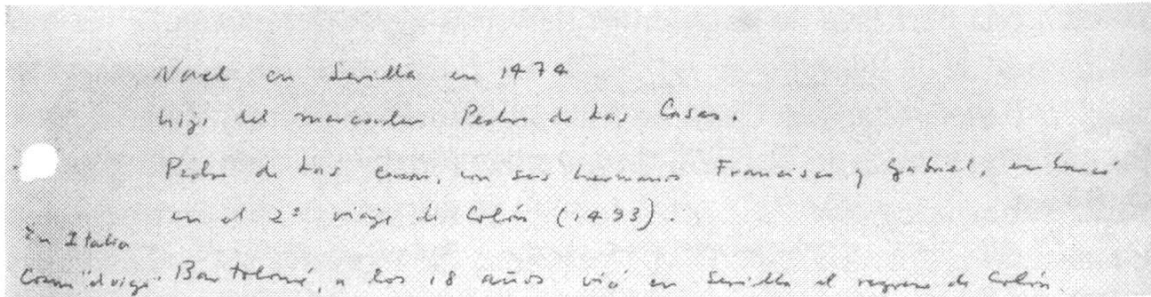 Nació en Sevilla en 1474
hijo del mercader Pedro de Las Casas.
Pedro de Las Casas, con sus hermanos Francisco y Gabriel, embarcó
en el 2º viaje de Colón (1493).
En Italia
Bartolomé, a los 18 años vió en Sevilla el regreso de Colón.